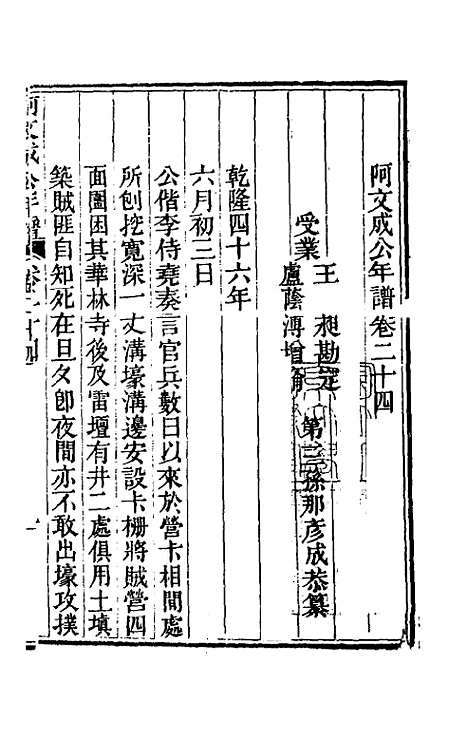 阿文成公年譜卷二十四
受業
王昶勘定
盧蔭溥增脩
第三孫那彥成恭纂
乾隆四十六年
六月初三日
公偕李侍堯奏言官兵數日以來於營卡相間處
所刨挖寬深一丈溝壕溝邊安設卡柵將賊營四
面圍困其華林寺後及雷壇有井二處俱用土填
築賊匪自知死在旦夕卽夜間亦不敢出壕攻撲
阿文成公年譜 卷二十四 一